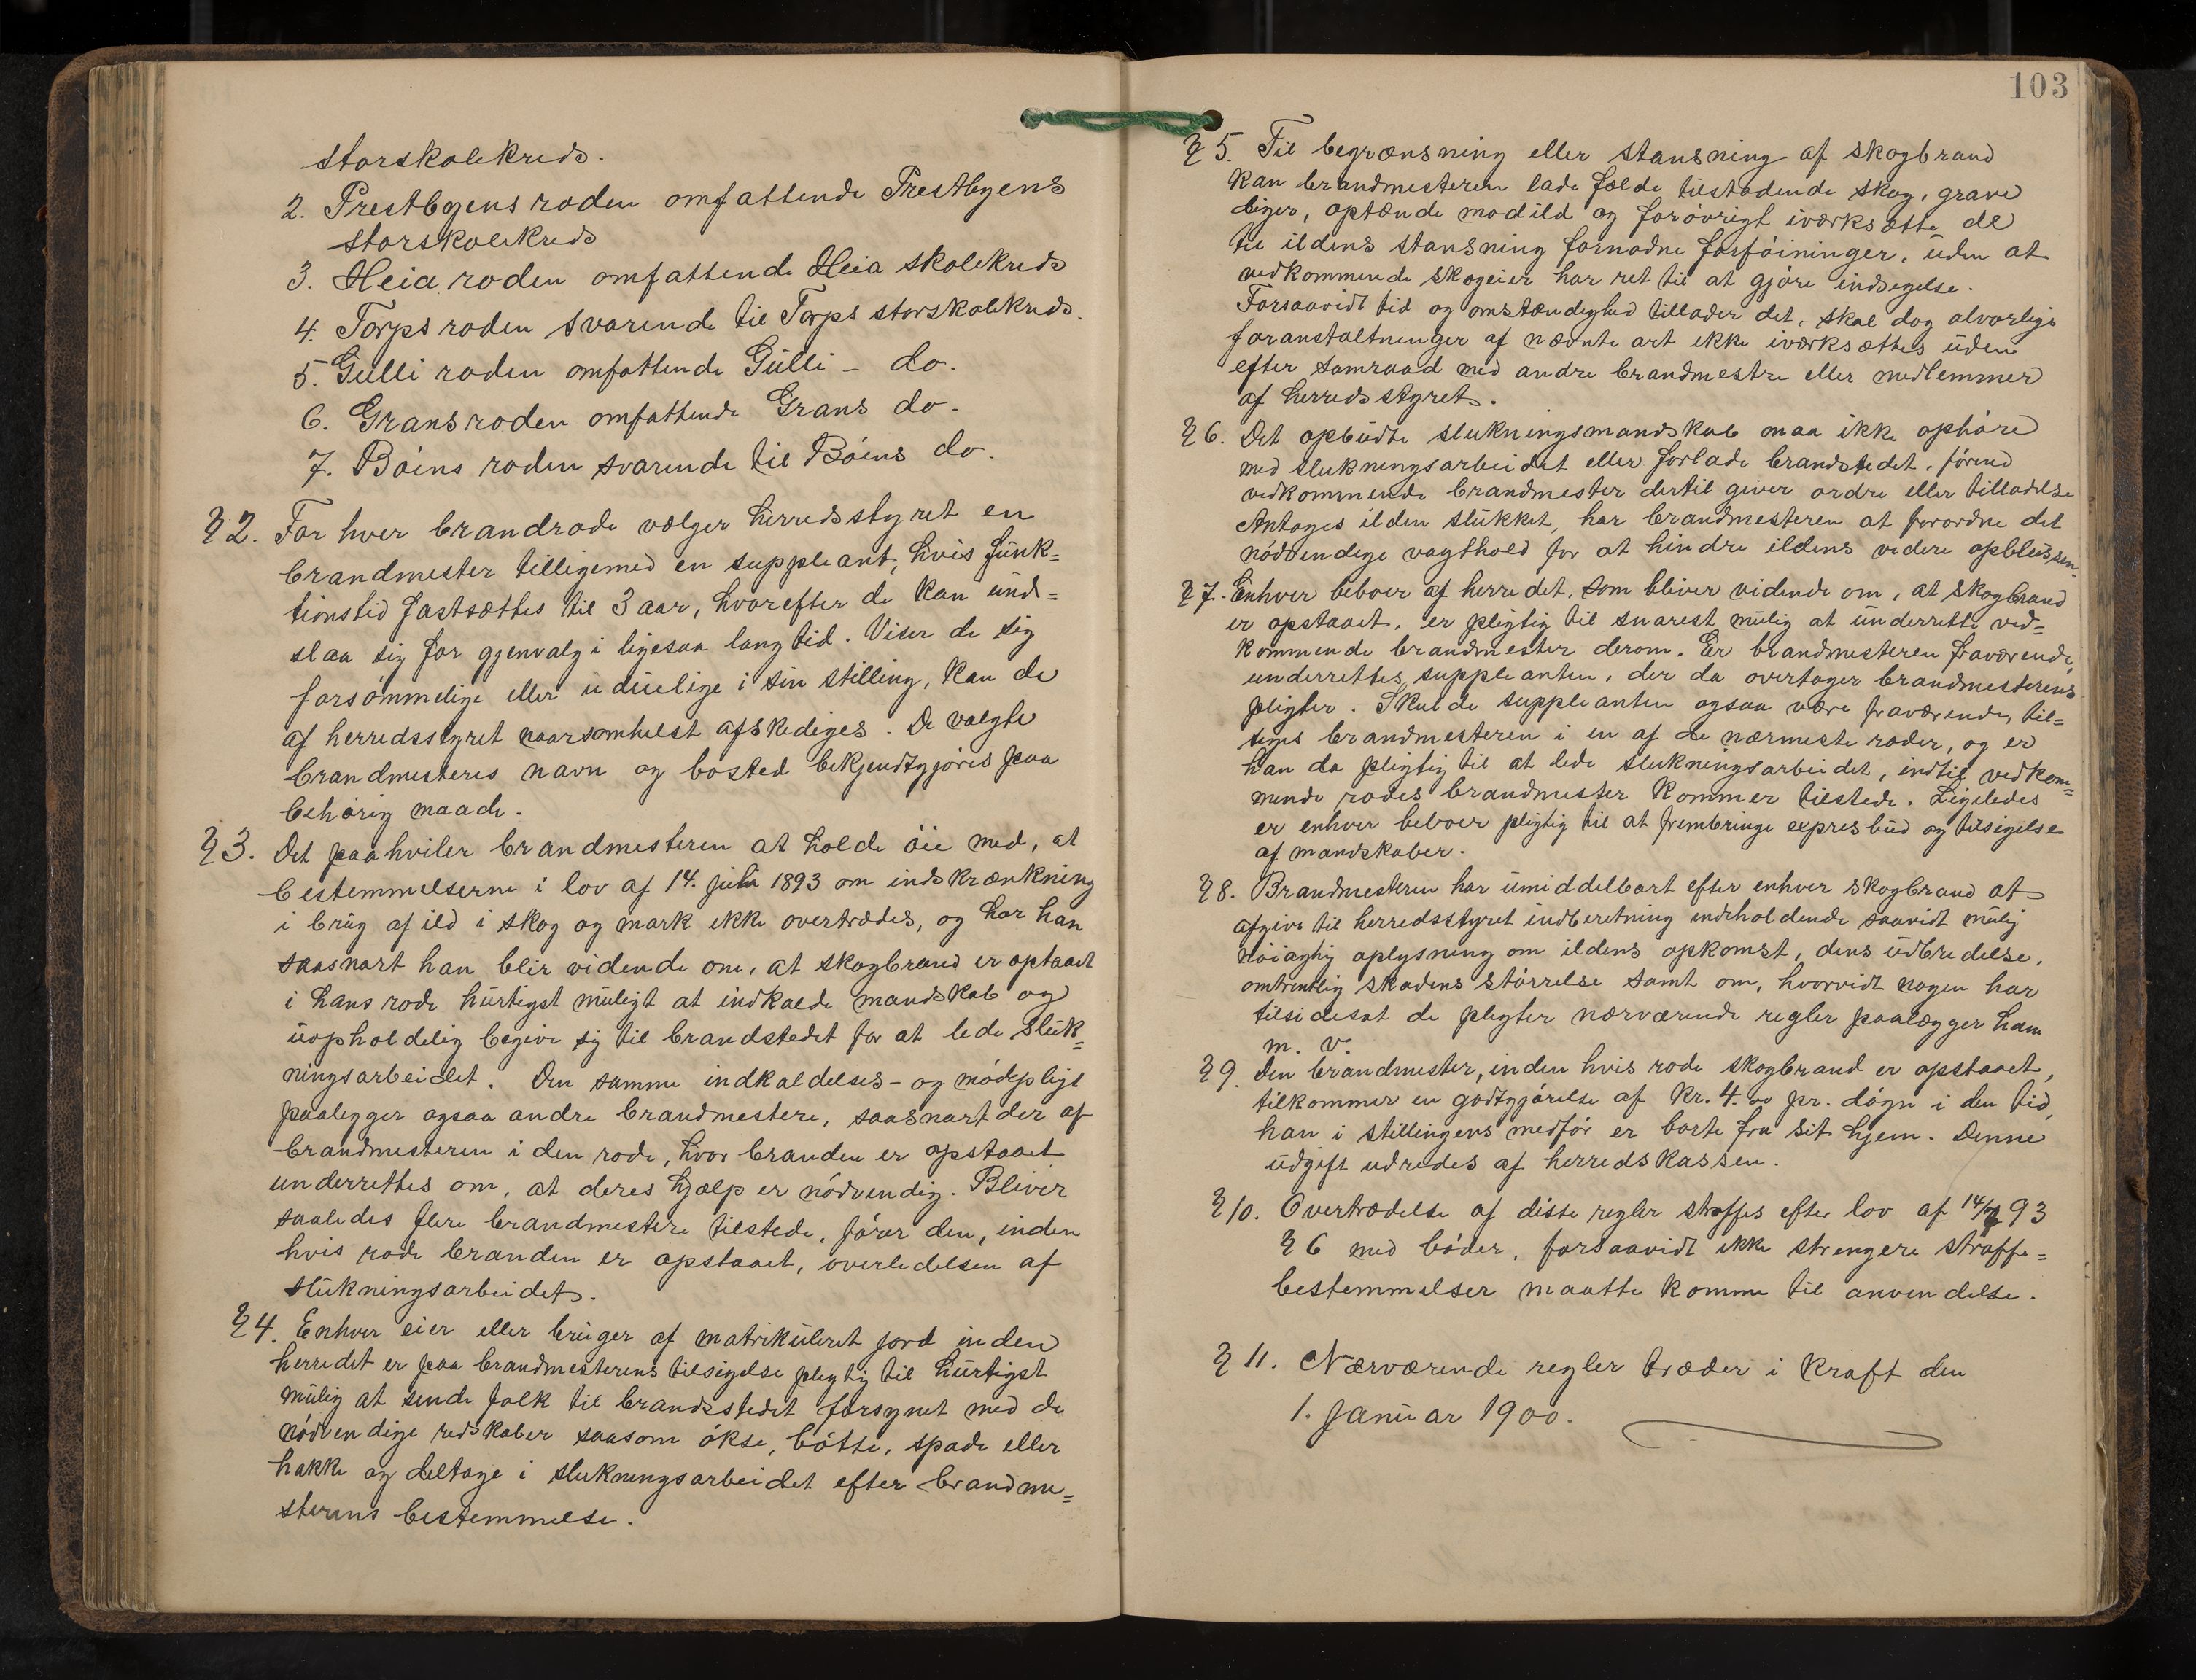 storskolekreds.
2. Prestbyens roden omfattende Prestbyens
storskolekreds
3. Heia roden omfattende Heia skolekreds
4. Torps roden svarende til Torps storskolekreds.
5. Gulli roden omfattende Gulli - do.
6. Grans roden omfattende Grans do.
7. Bøins roden svarende til Bøens do.
§ 2. For hver brandrode vælger herredsstyret en
brandmester tilligemed en suppleant, hvis funk=
tionstid fastsættes til 3 aar, hvorefter de kan und=
slaa sig for gjenvalg i ligesaa lang tid. Viser de sig
forsømmelige eller uduelige i sin stilling, kan de
af herredsstyret naarsomhelst afskediges. De valgte
brandmesteres navn og bosted bekjendtgjøres paa
behørig maade.
§ 3. Det paahviler brandmesteren at holde øie med, at
bestemmelserne i lov af 14. juli 1893 om indskrænkning
i brug af ild i skog og mark ikke overtrædes, og har han
saasnart han blir vidende om, at skogbrand er optaaet
i hans rode hurtigst muligt at indkalde mandskab og
uopholdelig begive sig til brandstedet for at lede sluk=
ningsarbeidet. Den samme indkaldelses- og mødepligt
paaligger ogsaa andre brandmestere, saasnart der af
brandmesteren i den rode, hvor branden er opstaaet
underrettes om, at deres hjælp er nødvendig. Bliver
saaledes flere brandmestere tilstede, fører den, inden
hvis rode branden er opstaaet, overledelsen af
slukningsarbeidet.
§ 4. Enhver eier eller bruger af matrikuleret jord inden
herredet er paa brandmesterens tilsigelse pligtig til hurtigst
mulig at sende folk til brandsstedet forsynet med de
nødvendige redskaber saasom økse, bøtte, spade eller
hakke og deltage i slukningsarbeidet efter brandme=
sterens bestemmelse.
103
§ 5. Til begrænsning eller stansning af skogbrand
kan brandmesteren lade fælde tilstødende skog, grave
diger, optænde modild og forøvrigt iværksætte de
til ildens stansning fornødne forføininger, uden at
vedkommende skogeier har ret til at gjøre indsigelse.
Forsaavidt tid og omstændighed tillader det, skal dog alvorlige
foranstaltninger af nævnte art ikke iværksættes uden
efter samraad med andre brandmestre eller medlemmer
af herredsstyret.
§ 6. Det opbudte slukningsmandskab maa ikke ophøre
med slukningsarbeidet eller forlade brandstedet, førend
vedkommende brandmester dertil giver ordre eller tilladelse
Antages ilden slukket, har brandmesteren at forordne det
nødvendige vagthold for at hindre ildens videre opblussen.
§ 7. Enhver beboer af herredet, som bliver vidende om, at skogbrand
er opstaaet, er pligtig til snarest mulig at underrette ved=
kommende brandmester derom. Er brandmesteren fraværende,
underrettes suppleanten, der da overtager brandmesterens
pligter. Skulde suppleanten ogsaa være fraværende, til=
siges brandmesteren i en af de nærmeste roder, og er
han da pligtig til at lede slukningsarbeidet, indtil vedkom=
mende rodes brandmester kommer tilstede. Ligeledes
er enhver beboer pligtig til at frembringe expresbud og tilsigelse
af mandskaber.
§ 8. Brandmesteren har umiddelbart efter enhver skogbrand at
afgive til herredsstyret indberetning indeholdende saavidt mulig
nøiagtig oplysning om ildens opkomst, dens udbredelse,
omtrentlig skadens størrelse samt om, hvorvidt nogen har
tilsidesat de pligter nærværende regler paalægger ham
m. v.
§ 9. Den brandmester, inden hvis rode skogbrand er opstaaet,
tilkommer en godtgjørelse af kr. 4.00 pr. døgn i den tid,
han i stillingens medfør er borte fra sit hjem. Denne
udgift udredes af herredskassen.
§ 10. Overtrædelse af disse regler straffes efter lov af 14/7 93
§ 6 med bøder, forsaavidt ikke strengere straffe=
bestemmelser maatte komme til anvendelse.
§ 11. Nærværende regler træder i kraft den
1. Januar 1900.